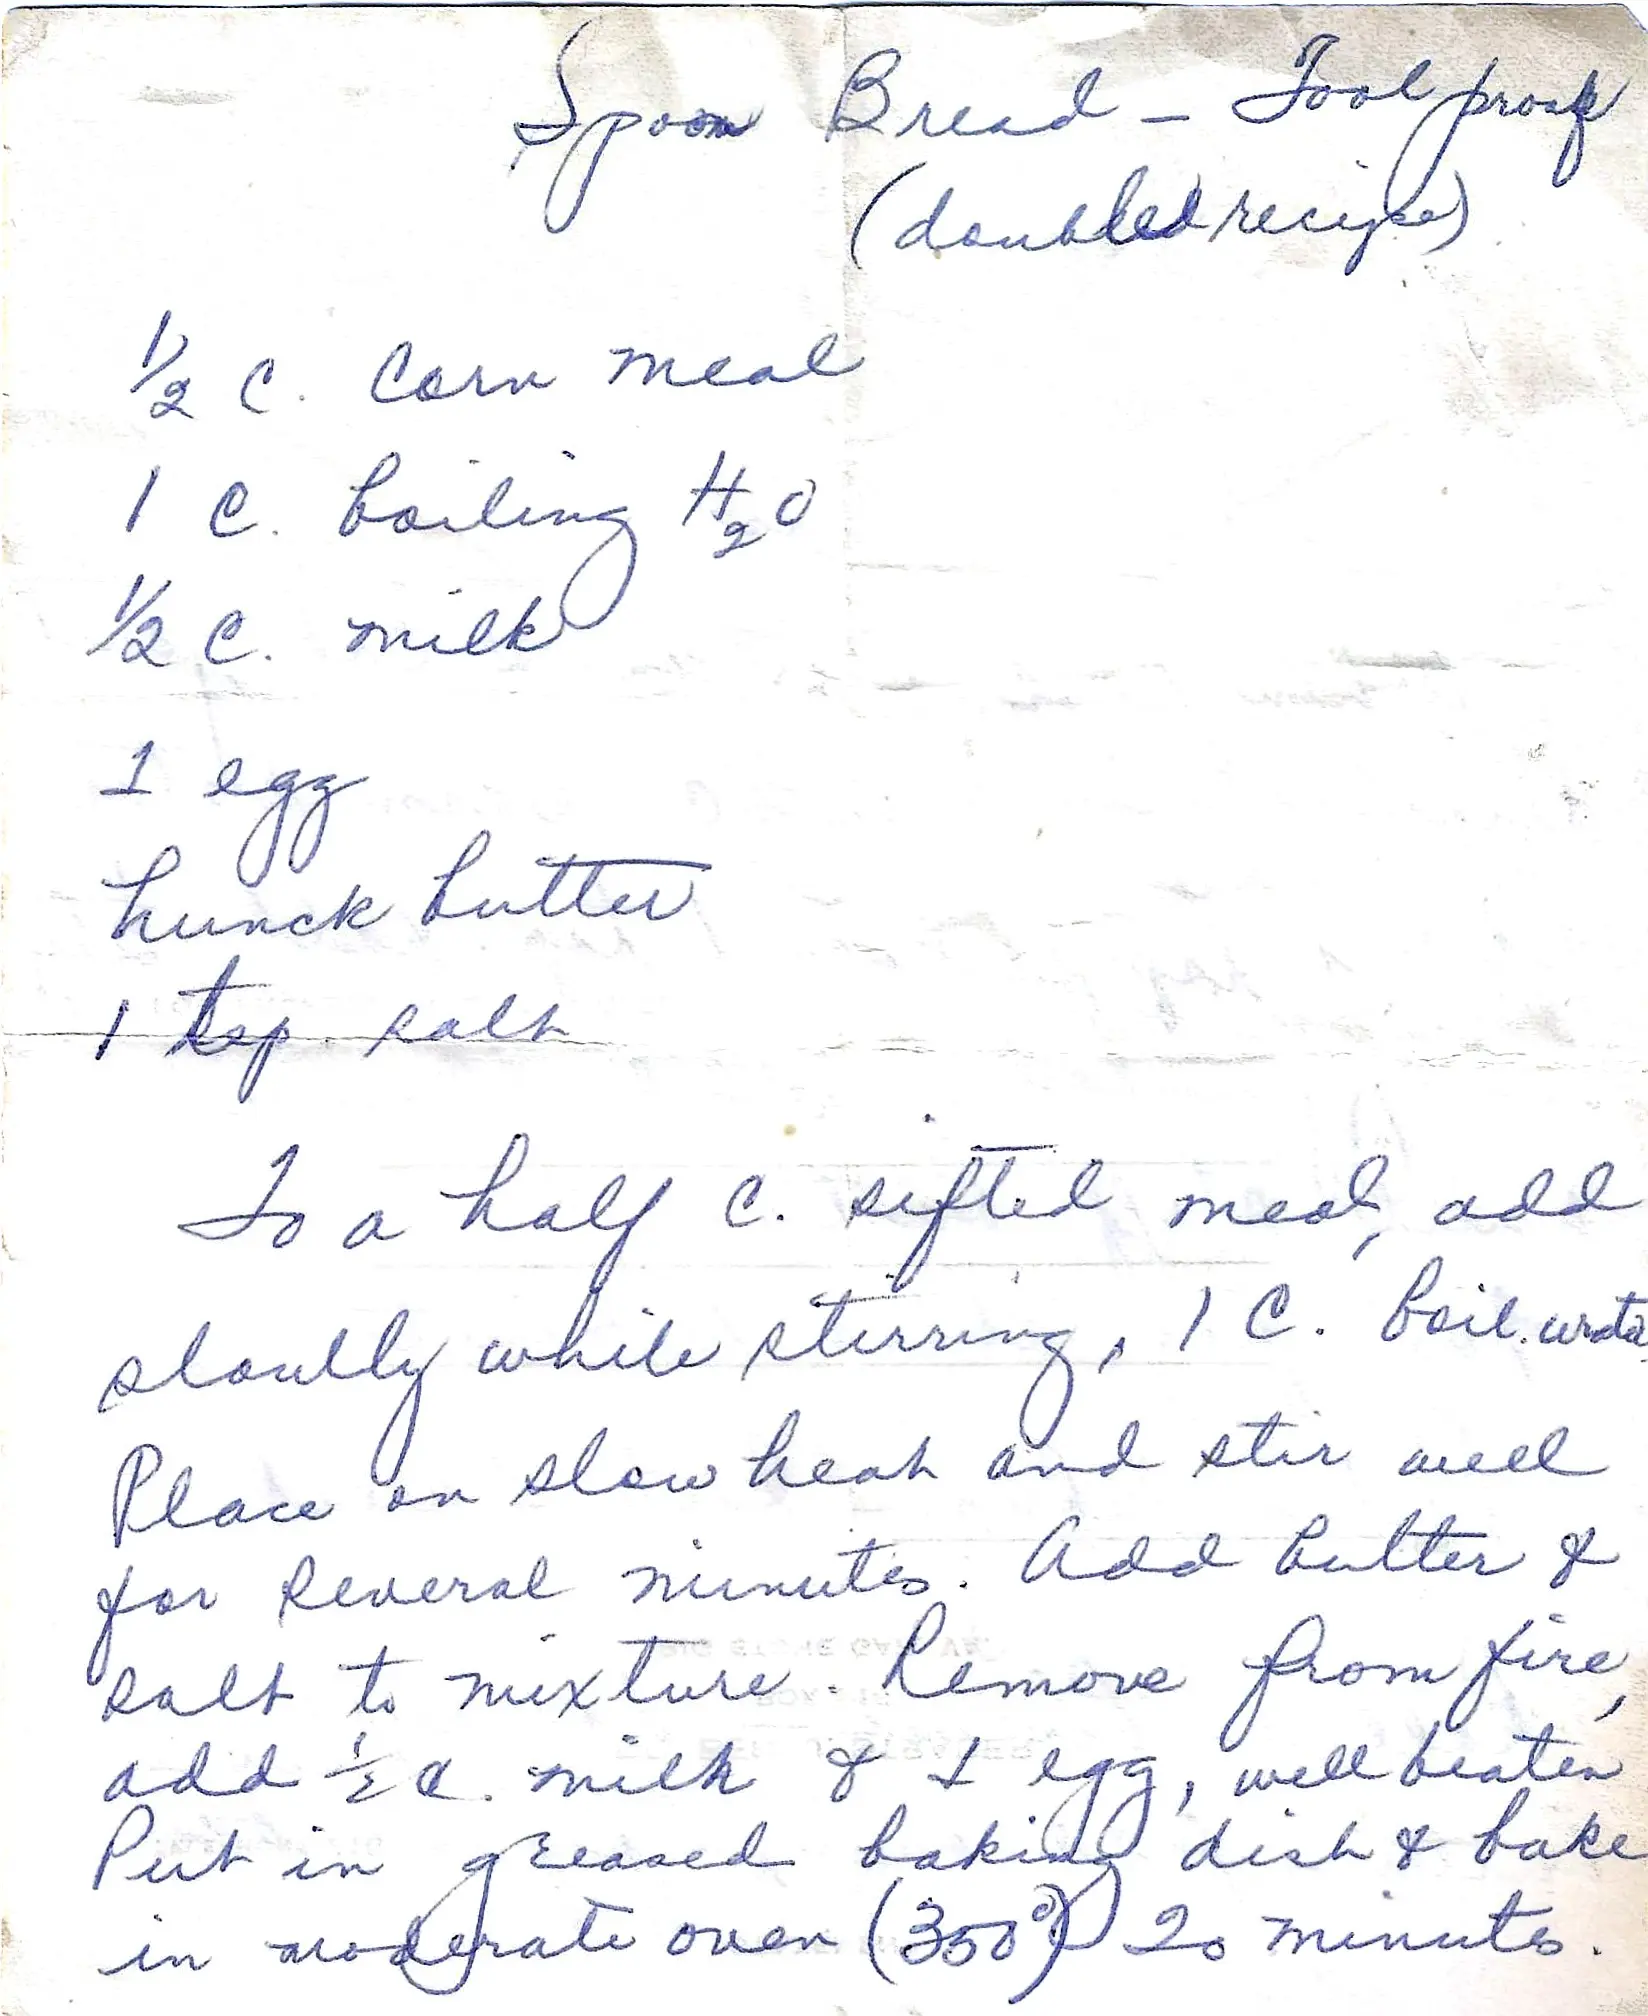 Spoon Bread – Fool proof
(doubled recipe)
½ C. Corn meal
1 C. boiling H₂O
½ C. milk
1 egg
hunck butter
1 tsp. salt
To a half C. sifted meal, add
slowlly while stirring, 1 C. boil. wate
Place on slow heat and stir well
for several minutes. Add butter &
salt to mixture. Remove from fire,
add ½ C. milk & 1 egg, well beaten
Put in greased baking dish & bake
in moderate oven (350°) 20 minutes.